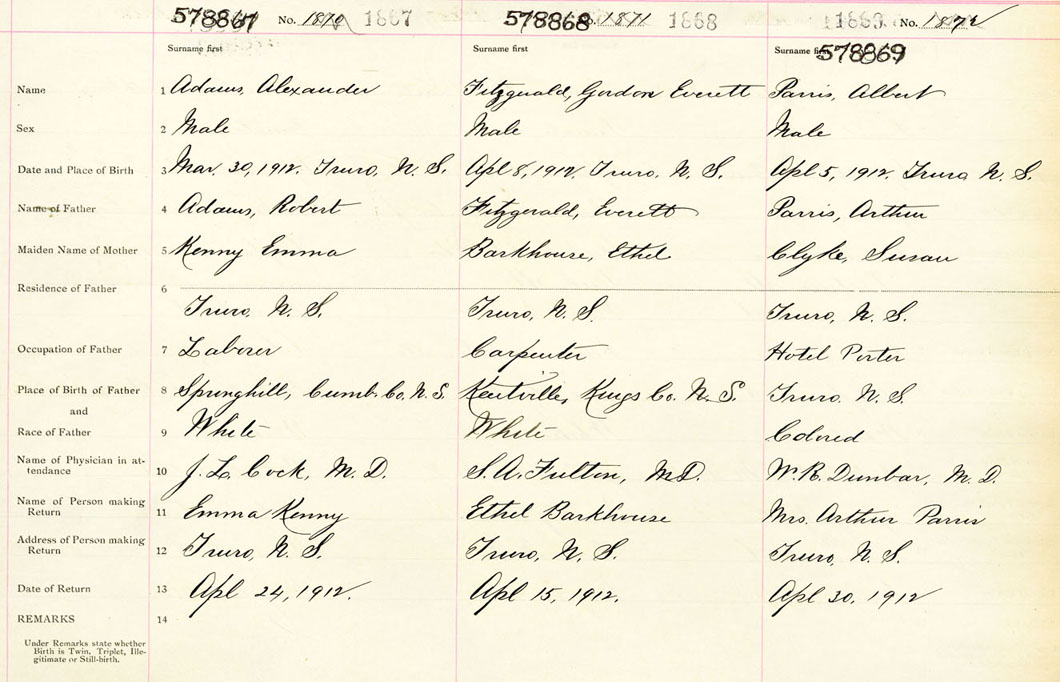 578867 No. 1870 1867 578868 No. 1871 1868 1869 No. 1872
Surname first Surname first Surname first 578869
Name 1 Adams, Alexander Fitzgerald, Gordon Everett Parris, Albert
Sex 2 Male Male Male
Date and Place of Birth 3 Mar. 30, 1912. Truro, N. S. Apl 8, 1912. Truro, N. S. Apl 5, 1912. Truro N. S.
Name of Father 4 Adams, Robert Fitzgerald, Everett Parris, Arthur
Maiden Name of Mother 5 Kenny Emma Barkhouse, Ethel Clyke, Susan
Residence of Father 6
Truro, N. S. Truro, N. S. Truro, N. S.
Occupation of Father 7 Laborer Carpenter Hotel Porter
Place of Birth of Father 8 Springhill, Cumb. Co. N. S. Kentville, Kings Co. N. S. Truro. N. S.
and
Race of Father 9 White White Colored
Name of Physician in at-
tendance 10 J. L. Cock, M. D. S. A. Fulton, M.D. W. R. Dunbar, M. D.
Name of Person making
Return 11 Emma Kenny Ethel Barkhouse Mrs. Arthur Parris
Address of Person making
Return 12 Truro, N. S. Truro, N. S. Truro, N. S.
Date of Return 13 Apl 24, 1912. Apl 15, 1912. Apl 30, 1912
REMARKS 14
Under Remarks state whether
Birth is Twin, Triplet, Ille-
gitimate or Still-birth.